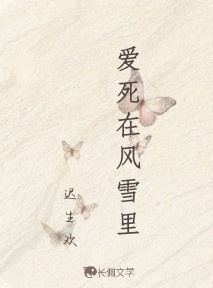 爱死在风雪里
迟生欢
长佩文学